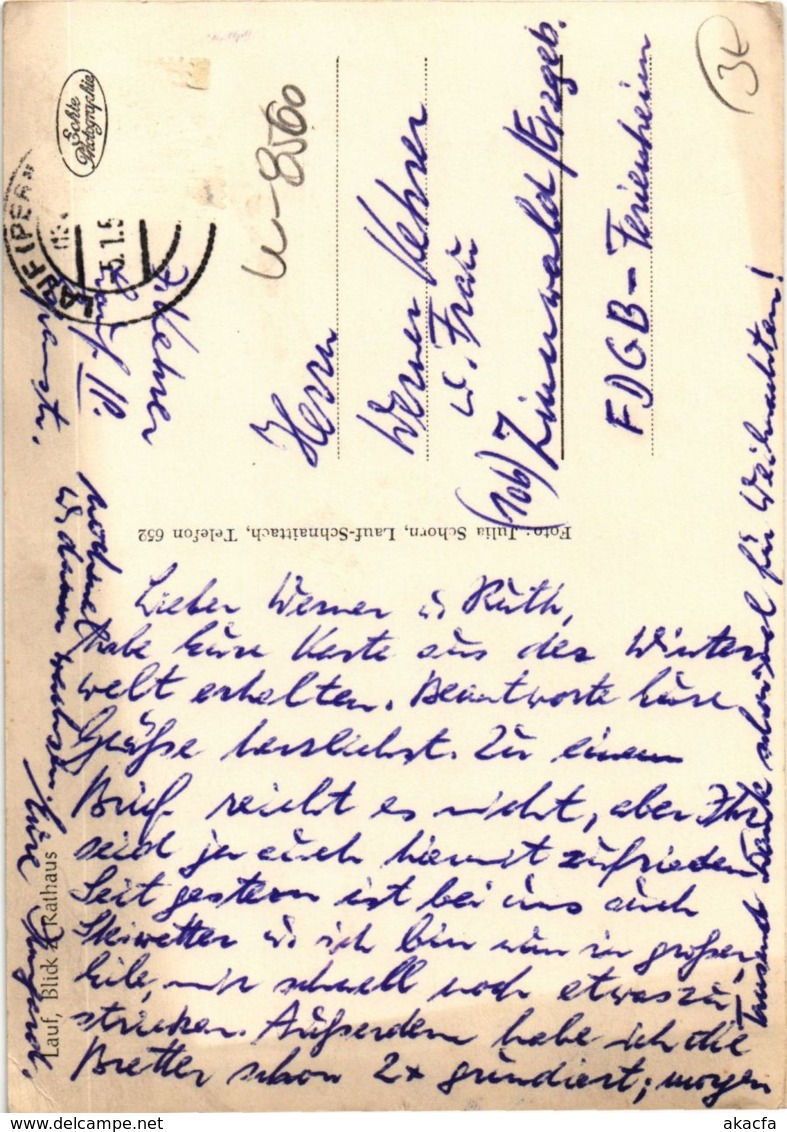 Lieber Werner u. Ruth,
habe Eure Karte aus der Winter
welt erhalten. Beantworte Eure
Grüße herzlichst. Zu einem
Brief reicht es nicht, aber Ihr
seid ja auch hiermit zufrieden.
Seit gestern ist bei uns auch
Skiwetter u. ich bin nun in großer
Eile, mir schnell noch etwas zu
stricken. Außerdem habe ich die
Bretter schon 2x grundiert; morgen
werden wachsen.
Eure Irmgard.
Tausend Dank schon für Weihnachten!
Lauf, Blick z. Rathaus
Foto: Julia Schorn, Lauf-Schnaittach, Telefon 652
Echte
Photographie
LAUF (PEGN
5.1.5
I. Kehrer
Lauf /P.
u-8560
Herrn
Werner Kehrer
u. Frau
(10b) Zinnwald/Erzgeb.
FDGB-Ferienheim
3€
akacfa